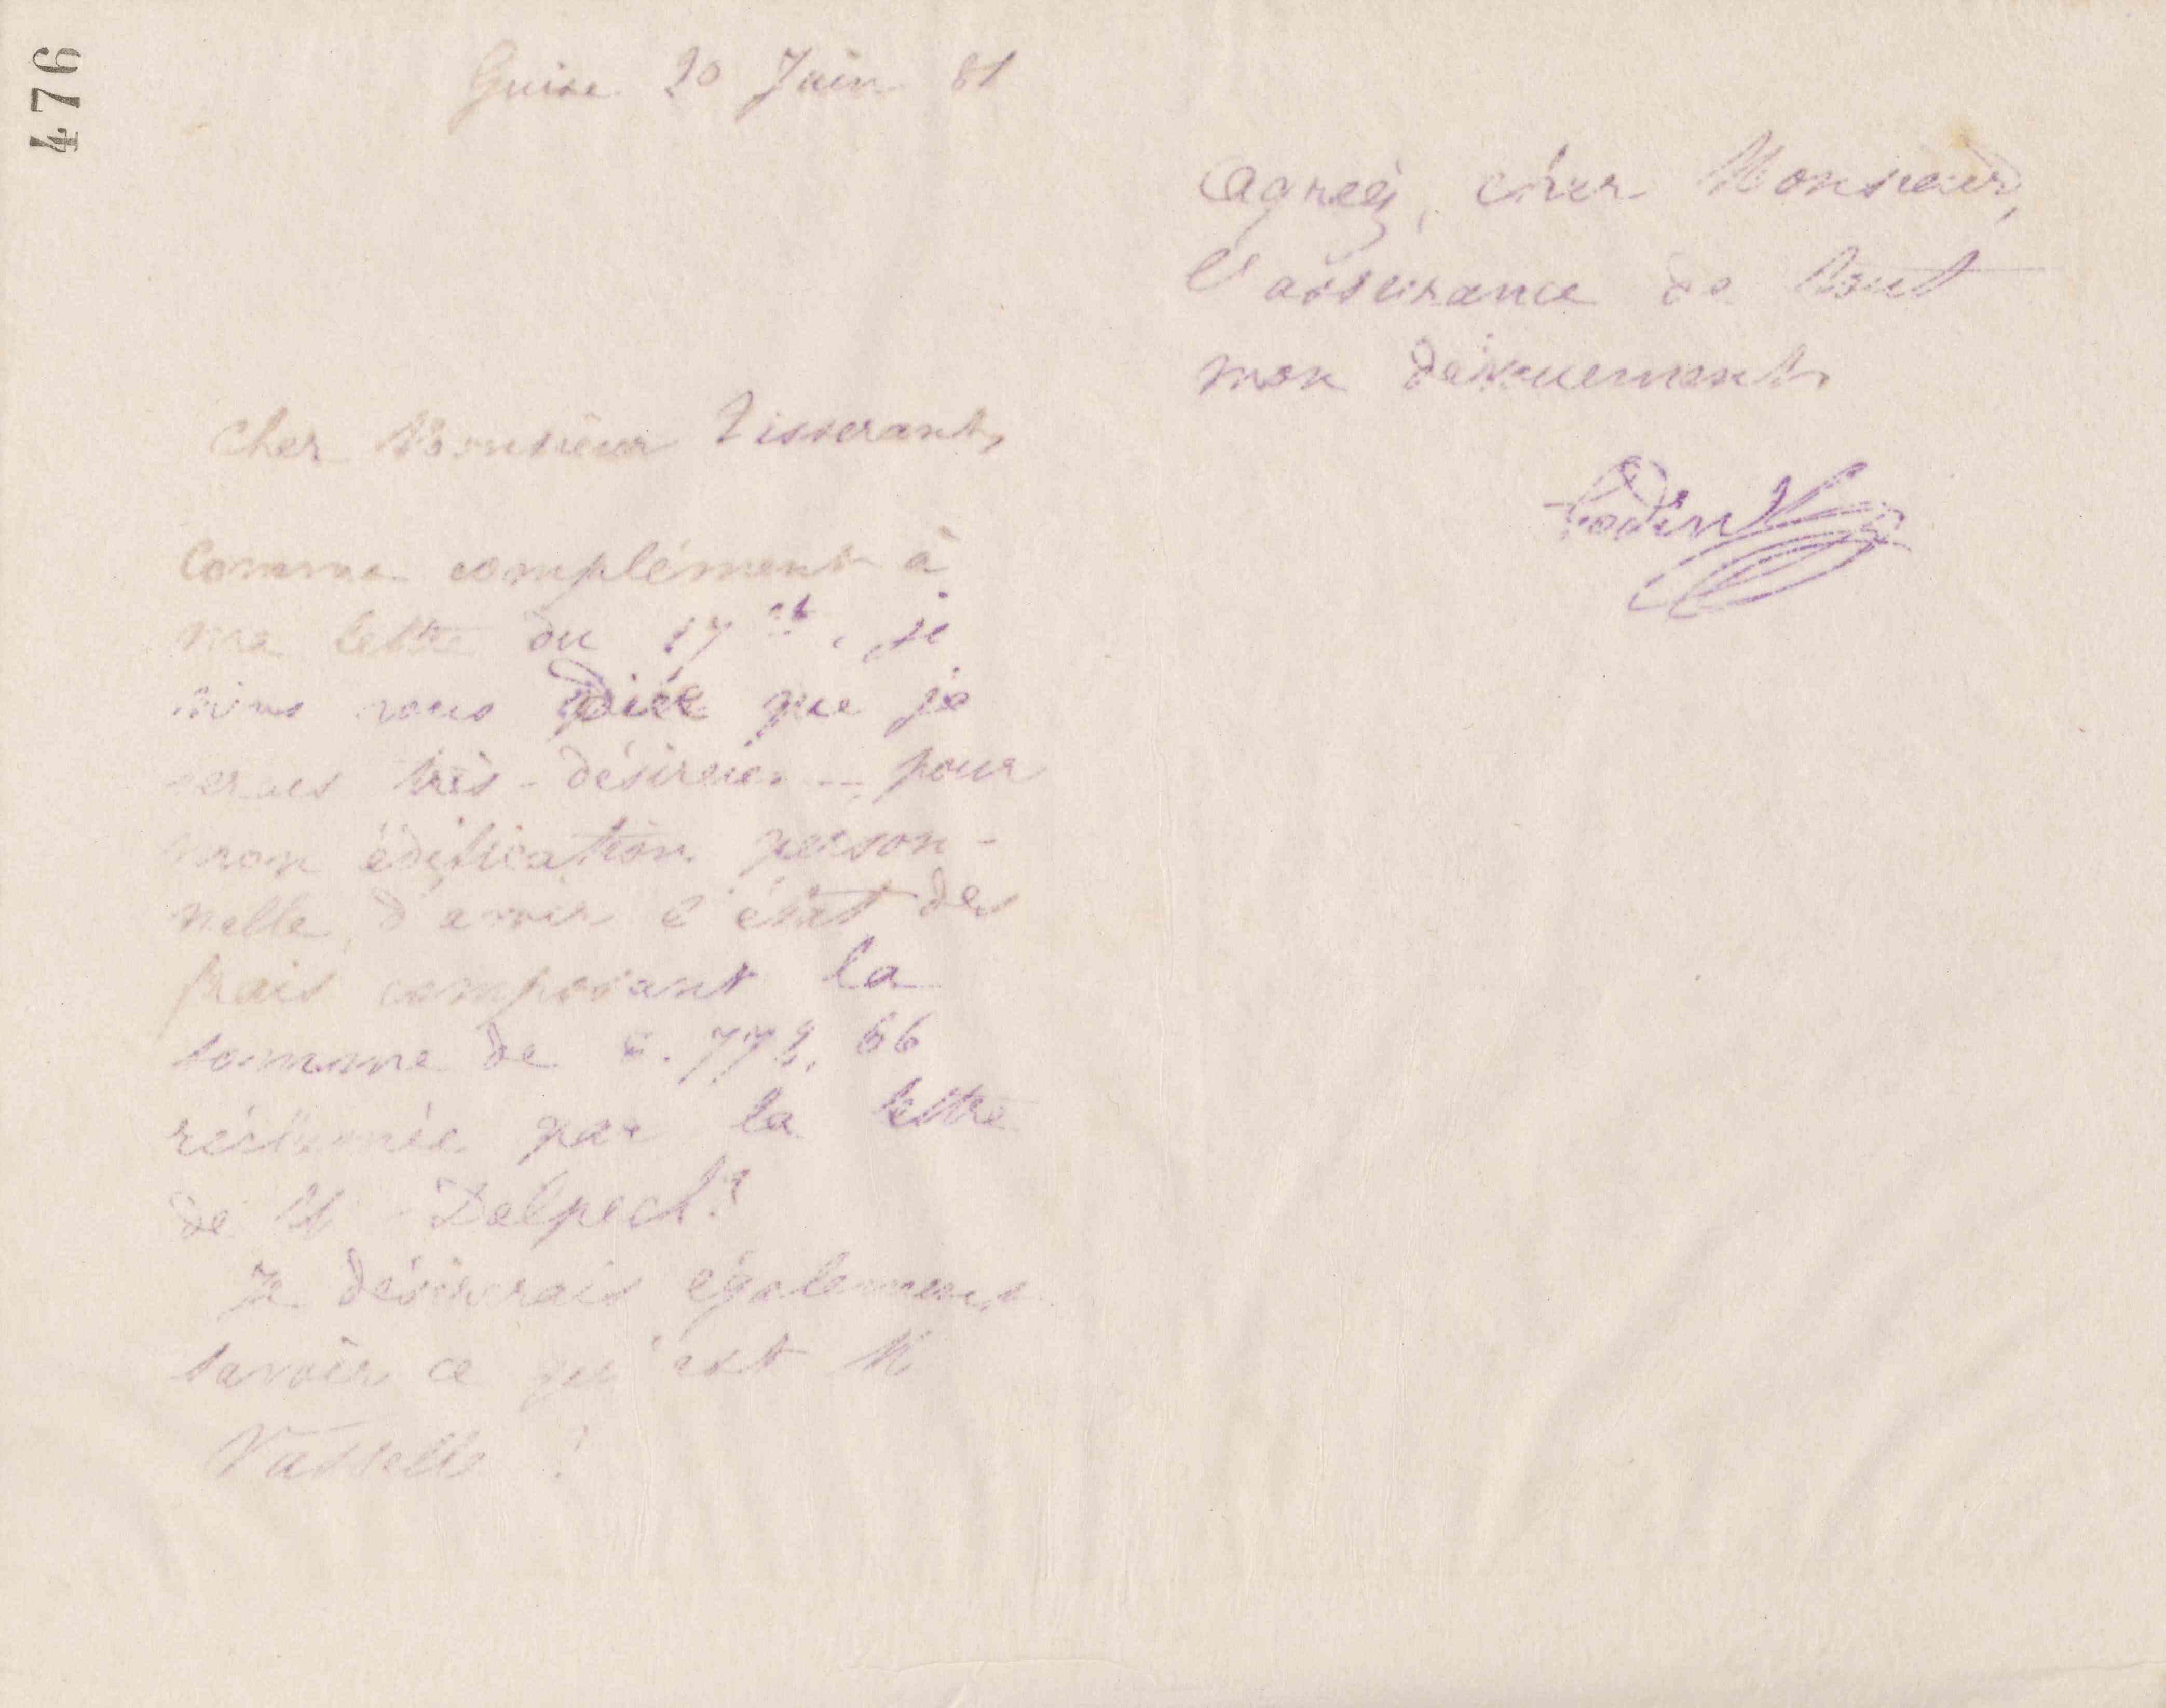 476
Guise 20 Juin 81
Cher Monsieur Tisserant,
Comme complément à
ma lettre du 17 ct, je
viens vous dire que je
serais très-désireux, pour
mon édification person-
nelle, d'avoir l'état des
frais composant la
somme de 66
par la lettre
de M Delpech?
Je désirerais également
savoir ce qu'est M
Vasselle ?
Agréez, cher Monsieur,
l'assurance de tout
mon dévouement
Godin